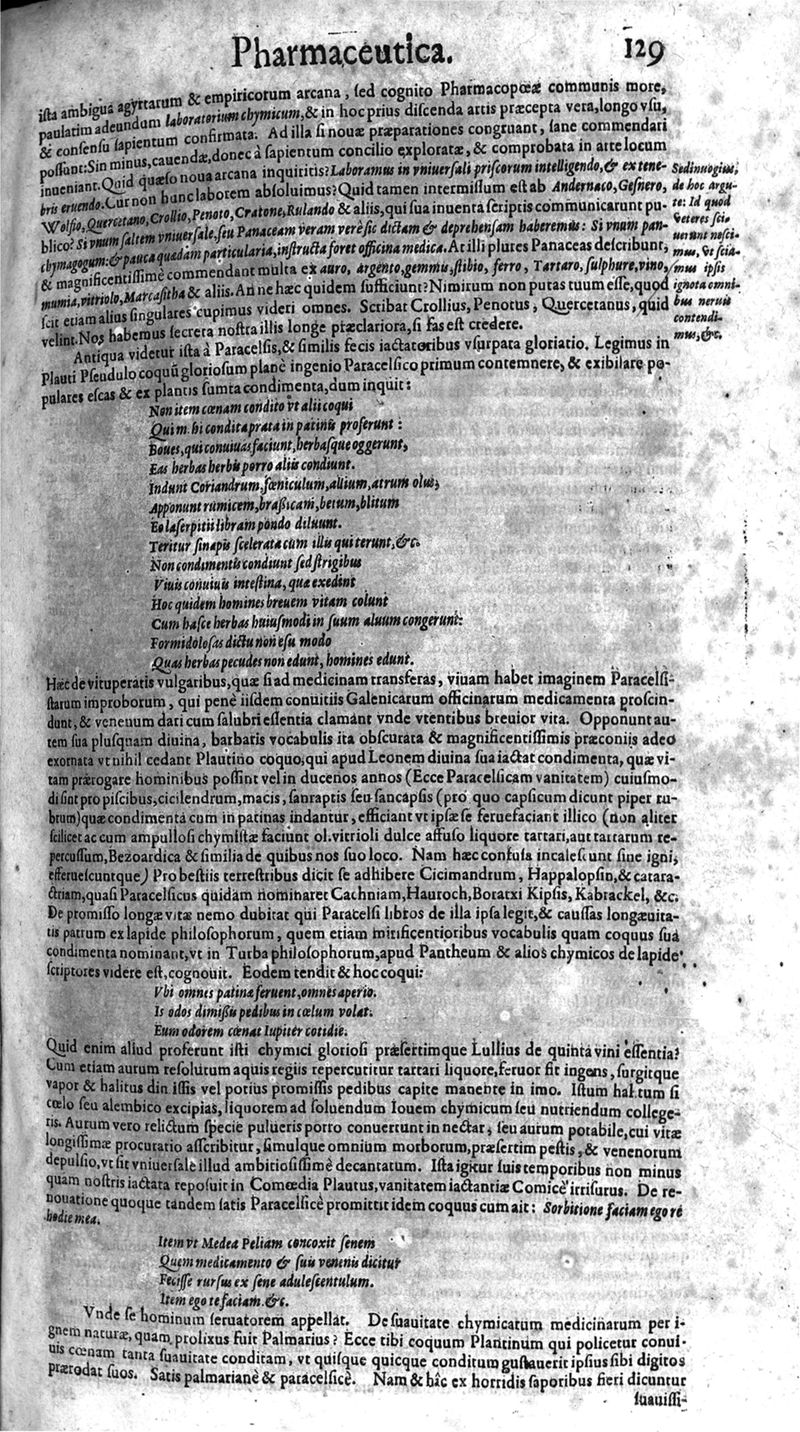 Pharmaceutica. 129
ista ambigua agyrtarum & empiricorum arcana, sed cognito Pharmacopœæ communis more,
paulatim adeundum laboratorium chymicum, & in hoc prius discenda artis præcepta vera, longo vsu,
& consensu sapientum confirmata. Ad illa si nouæ præparationes congruant, sane commendari
possunt: Sin minus, cauendæ, donec à sapientum concilio exploratæ, & comprobata in arte locum
inueniant. Quid quæso noua arcana inquiritis? Laboramus in vniuersali priscorum intelligendo, & ex tene-
bris eruendo. Cur non hunc laborem absoluimus? Quid tamen intermissum est ab Andernaco, Gesnero,
Wolfio, Quercetano, Crollio, Penoto, Cratone, Rulando & aliis, qui sua inuenta scriptis communicarunt pu-
blico? Si vnum saltem vniuersale, seu Panaceam veram verè sic dictam & deprehensam haberemus: Si vnum pan-
chymagogum: & pauca quædam particularia, instructa foret officina medica. At illi plures Panaceas describunt,
& magnificentissimè commendant multa ex auro, argento, gemmis, stibio, ferro, Tartaro, sulphure, vino,
mumia, vitriolo, Marcasitha & aliis. An ne hæc quidem sufficiunt? Nimirum non putas tuum esse, quod
scit etiam alius singulares cupimus videri omnes. Scribat Crollius, Penotus, Quercetanus, quid
velint. Nos habemus secreta nostra illis longè præclariora, si fas est credere.
Sed inuogius,
de hoc argu-
te: Id quod
Veteres sci-
uerunt nesci-
mus, vt scia-
mus ipsis
ignota omni-
bus neruis
contendi-
mus, &c.
Antiqua videtur ista à Paracelsis, & similis fecis iactatoribus vsurpata gloriatio. Legimus in
Plauti Pseudulo coquũ gloriosum planè ingenio Paracelsico primum contemnere, & exibilare po-
pulares escas & ex plantis sumta condimenta, dum inquit:
Non item cœnam condito vt alii coqui
Qui m.hi condita prata in patinis proferunt:
Boues, qui conuiuas faciunt, herbasque oggerunt,
Eas herbas herbis porro aliis condiunt.
Indunt Coriandrum, fœniculum, allium, atrum olus,
Apponunt rumicem, brassicam, betum, blitum
Eo laserpitii libram pondo diluunt.
Teritur sinapis scelerata cum illis qui terunt, &c.
Non condimentis condiunt sed strigibus
Viuis conuiuis intestina, quæ exedint
Hoc quidem homines breuem vitam colunt
Cum hasce herbas huiusmodi in suum aluum congerunt:
Formidolosas dictu non esu modo
Quas herbas pecudes non edunt, homines edunt.
Hæc de vituperatis vulgaribus, quæ si ad medicinam transferas, viuam habet imaginem Paracelsi-
starum improborum, qui penè iisdem conuitiis Galenicarum officinarum medicamenta proscin-
dunt, & venenum dari cum salubri essentia clamant vnde vtentibus breuior vita. Opponunt au-
tem sua plusquam diuina, barbatis vocabulis ita obscurata & magnificentissimis præconiis adeo
exornata vt nihil cedant Plautino coquo, qui apud Leonem diuina sua iactat condimenta, quæ vi-
tam prærogare hominibus possint vel in ducenos annos (Ecce Paracelsicam vanitatem) cuiusmo-
di sint pro piscibus, cicilendrum, macis, sanraptis seu sancapsis (pro quo capsicum dicunt piper ru-
brum) quæ condimenta cum in patinas indantur, efficiant vt ipsæ se feruefaciant illico (non aliter
scilicet ac cum ampullosi chymistæ faciunt ol. vitrioli dulce affuso liquore tartari, aut tartarum re-
percussum, Bezoardica & similia de quibus nos suo loco. Nam hæc confusa incalescunt sine igni,
efferuescuntque) Pro bestiis terrestribus dicit se adhibere Cicimandrum, Happalopsin, & catara-
ctriam, quasi Paracelsicus quidam nominaret Cachniam, Hauroch, Boratxi Kipsis, Kabrackel, &c.
De promisso longæ vitæ nemo dubitat qui Paracelsi libros de illa ipsa legit, & caussas longæuita-
tis patrum ex lapide philosophorum, quem etiam mirificentioribus vocabulis quam coquus sua
condimenta nominant, vt in Turba philosophorum, apud Pantheum & alios chymicos de lapide
scriptores videre est, cognouit. Eodem tendit & hoc coqui:
Vbi omnes patinæ feruent, omnes aperio.
Is odos dimissis pedibus in cœlum volat.
Eum odorem cœnat Iupiter cotidie.
Quid enim aliud proferunt isti chymici gloriosi præsertimque Lullius de quinta vini essentia?
Cum etiam aurum resolutum aquis regiis repercutitur tartari liquore, feruor fit ingens, surgitque
vapor & halitus dimissis vel potius promissis pedibus capite manente in imo. Istum halitum si
cœlo seu alembico excipias, liquorem ad soluendum Iouem chymicum seu nutriendum college-
ris. Aurum vero relictum specie pulueris porro conuertunt in nectar, seu aurum potabile, cui vitæ
longissimæ procuratio asscribitur, simulque omnium morborum, præsertim pestis, & venenorum
depulsio, vt sit vniuersale illud ambitiosissimè decantatum. Ista igitur suis temporibus non minus
quam nostris iactata reposuit in Comœdia Plautus, vanitatem iactantiæ Comicè irrisurus. De re-
nouatione quoque tandem satis Paracelsicè promittit idem coquus cum ait: Sorbitione faciam ego te
hodie mea.
Item vt Medea Peliam concoxit senem
Quem medicamento & suis venenis dicitur
Fecisse rursus ex sene adulescentulum.
Item ego te faciam. &c.
Vnde se hominum seruatorem appellat. De suauitate chymicarum medicinarum per i-
gnem naturæ, quam prolixus fuit Palmarius? Ecce tibi coquum Plantinum qui policetur conui-
uis cœnam tanta suauitate conditam, vt quisque quicque conditum gustauerit ipsius sibi digitos
prærodat suos. Satis palmarianè & paracelsicè. Nam & hîc ex horridis saporibus fieri dicuntur
suauissi-